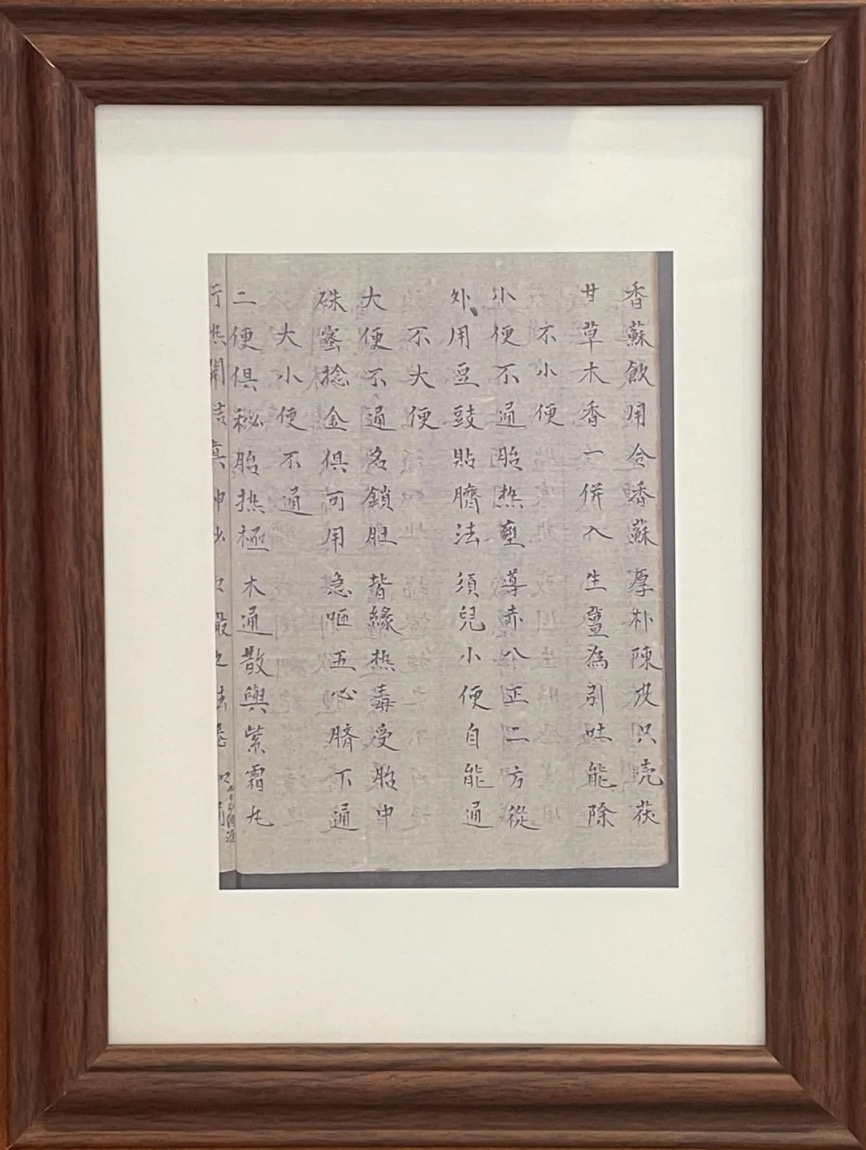 香蘇飲用合香蘇厚朴陳皮只売茯
甘草木香一併入生薑為引吐能除
不小便
小便不通胎热壅導赤八正二方從
外用豆豉貼臍法須兒小便自能通
不大便
大便不通名鎖肚皆緣热毒受胎中
硃蜜捻金俱可用急咂五心臍下通
大小便不通
二便俱秘胎热極木通散與紫霜丸